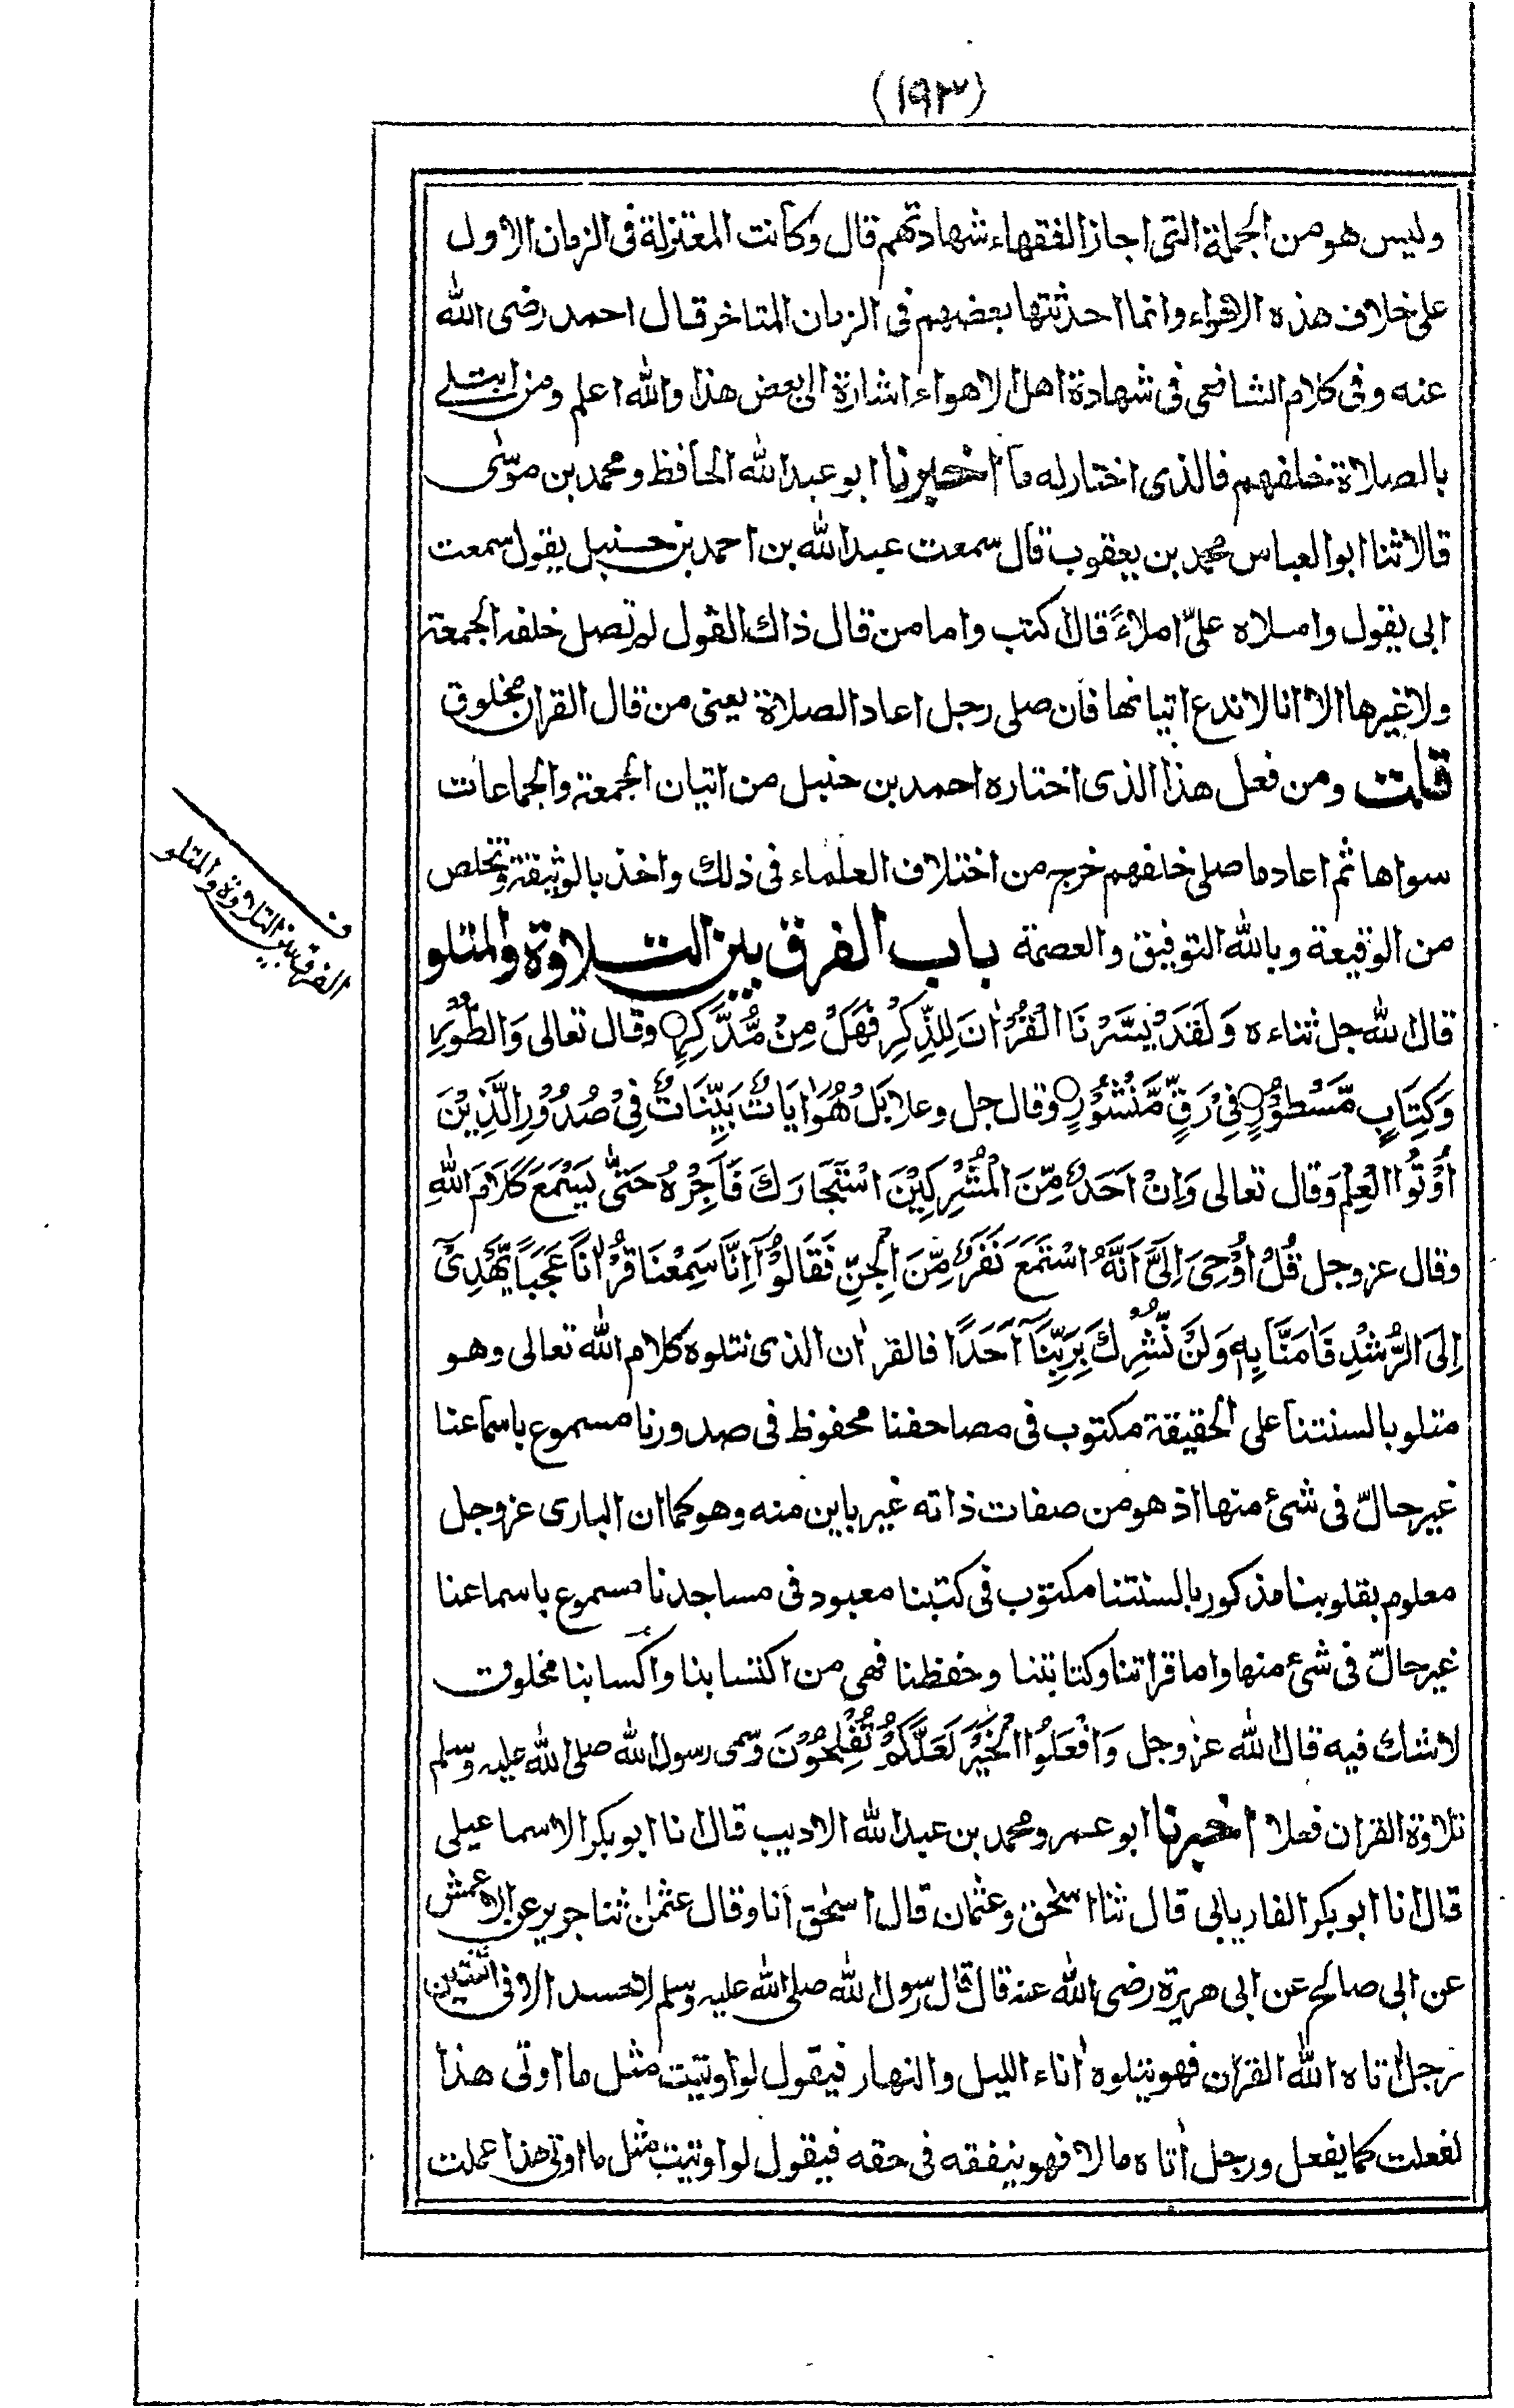 (١٩٣)
وليس هو من الجملة التى اجاز الفقهاء شهادتهم قال وكانت المعتزلة فى الزمان الاول
على خلاف هذه الاهواء وانما احدثتها بعضهم فى الزمان المتاخر قال احمد رضى الله
عنه وفى كلام الشافعى فى شهادة اهل الاهواء اشارة الى بعض هذا والله اعلم ومن ابتلے
بالصلاة خلفهم فالذى اختار له ما اخبرنا ابو عبد الله الحافظ ومحمد بن موسٰى
قالا ثنا ابو العباس محمد بن يعقوب قال سمعت عبد الله بن احمد بن حنبل يقول سمعت
ابى يقول واملاه علىّ املاءً قال اكتب واما من قال ذاك القول لم تصل خلفه الجمعة
ولا غيرها الا انا لا ندع اتيانها فان صلى رجل اعاد الصلاة يعنى من قال القران مخلوق
قلت ومن فعل هذا الذى اختاره احمد بن حنبل من اتيان الجمعة والجماعات
سواها ثم اعاد ما صلى خلفهم خرج من اختلاف العلماء فى ذلك واخذ بالوثيقة وتخلص
من الوقيعة وبالله التوفيق والعصمة باب الفرق بين التلاوة والمتلو
قال الله جل ثناءه وَلَقَدْ يَسَّرْنَا الْقُرْاٰنَ لِلذِّكْرِ فَهَلْ مِنْ مُّدَّكِرٍ○ وقال تعالى وَالطُّوْرِ
وَكِتَابٍ مَّسْطُوْرٍ○ فِىْ رَقٍّ مَّنْشُوْرٍ○ وقال جل وعلا بَلْ هُوَ اٰيَاتٌ بَيِّنَاتٌ فِىْ صُدُوْرِ الَّذِيْنَ
اُوْتُوا الْعِلْمَ وقال تعالى وَاِنْ اَحَدٌ مِّنَ الْمُشْرِكِيْنَ اسْتَجَارَكَ فَاَجِرْهُ حَتّٰى يَسْمَعَ كَلَامَ اللهِ
وقال عز وجل قُلْ اُوْحِىَ اِلَىَّ اَنَّهُ اسْتَمَعَ نَفَرٌ مِّنَ الْجِنِّ فَقَالُوْٓا اِنَّا سَمِعْنَا قُرْاٰنًا عَجَبًا يَّهْدِىْٓ
اِلَى الرُّشْدِ فَاٰمَنَّا بِهٖ وَلَنْ نُّشْرِكَ بِرَبِّنَآ اَحَدًا فالقراٰن الذى نتلوه كلام الله تعالى وهو
متلو بالسنتنا على الحقيقة مكتوب فى مصاحفنا محفوظ فى صدورنا مسموع باسماعنا
غير حالّ فى شئ منها اذ هو من صفات ذاته غير باين منه وهو كما ان البارى عز وجل
معلوم بقلوبنا مذكور بالسنتنا مكتوب فى كتبنا معبود فى مساجدنا مسموع باسماعنا
غير حالّ فى شئ منها واما قراتنا وكتابتنا وحفظنا فهى من اكتسابنا واكسابنا مخلوق
لا شك فيه قال الله عز وجل وَافْعَلُوا الْخَيْرَ لَعَلَّكُمْ تُفْلِحُوْنَ وسمى رسول الله صلى الله عليه وسلم
تلاوة القران فعلا اخبرنا ابو عمرو محمد بن عبد الله الاديب قال انا ابو بكر الاسماعيلى
قال انا ابو بكر الفاريابى قال ثنا اسحٰق وعثمان قال اسحٰق انا وقال عثمٰن ثنا جرير عن الاعمش
عن ابى صالح عن ابى هريرة رضى الله عنه قال قال رسول الله صلى الله عليه وسلم لا حسد الا فى اثنتين
رجل اتاه الله القران فهو يتلوه اٰناء الليل والنهار فيقول لو اوتيت مثل ما اوتى هذا
لفعلت كما يفعل ورجل اٰتاه مالا فهو ينفقه فى حقه فيقول لو اوتيت مثل ما اوتى هذا عملت
ف
الفرق بين التلاوة والمتلو